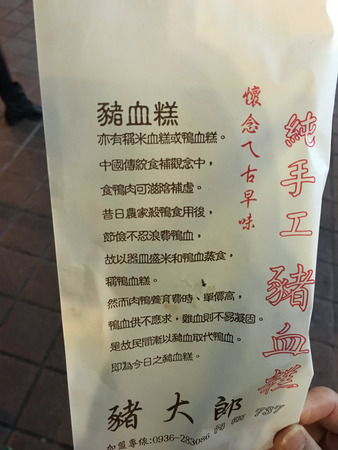 純手工豬血糕
懷念ㄟ古早味
豬血糕
亦有稱米血糕或鴨血糕。
中國傳統食補觀念中，
食鴨肉可滋陰補虛。
昔日農家殺鴨食用後，
節儉不忍浪費鴨血，
故以器皿盛米和鴨血蒸食，
稱鴨血糕。
然而肉鴨養育費時、單價高，
鴨血供不應求，雞血則不易凝固。
是故民間漸以豬血取代鴨血。
即為今日之豬血糕。
豬大郎
加盟專線:0936-283086
737